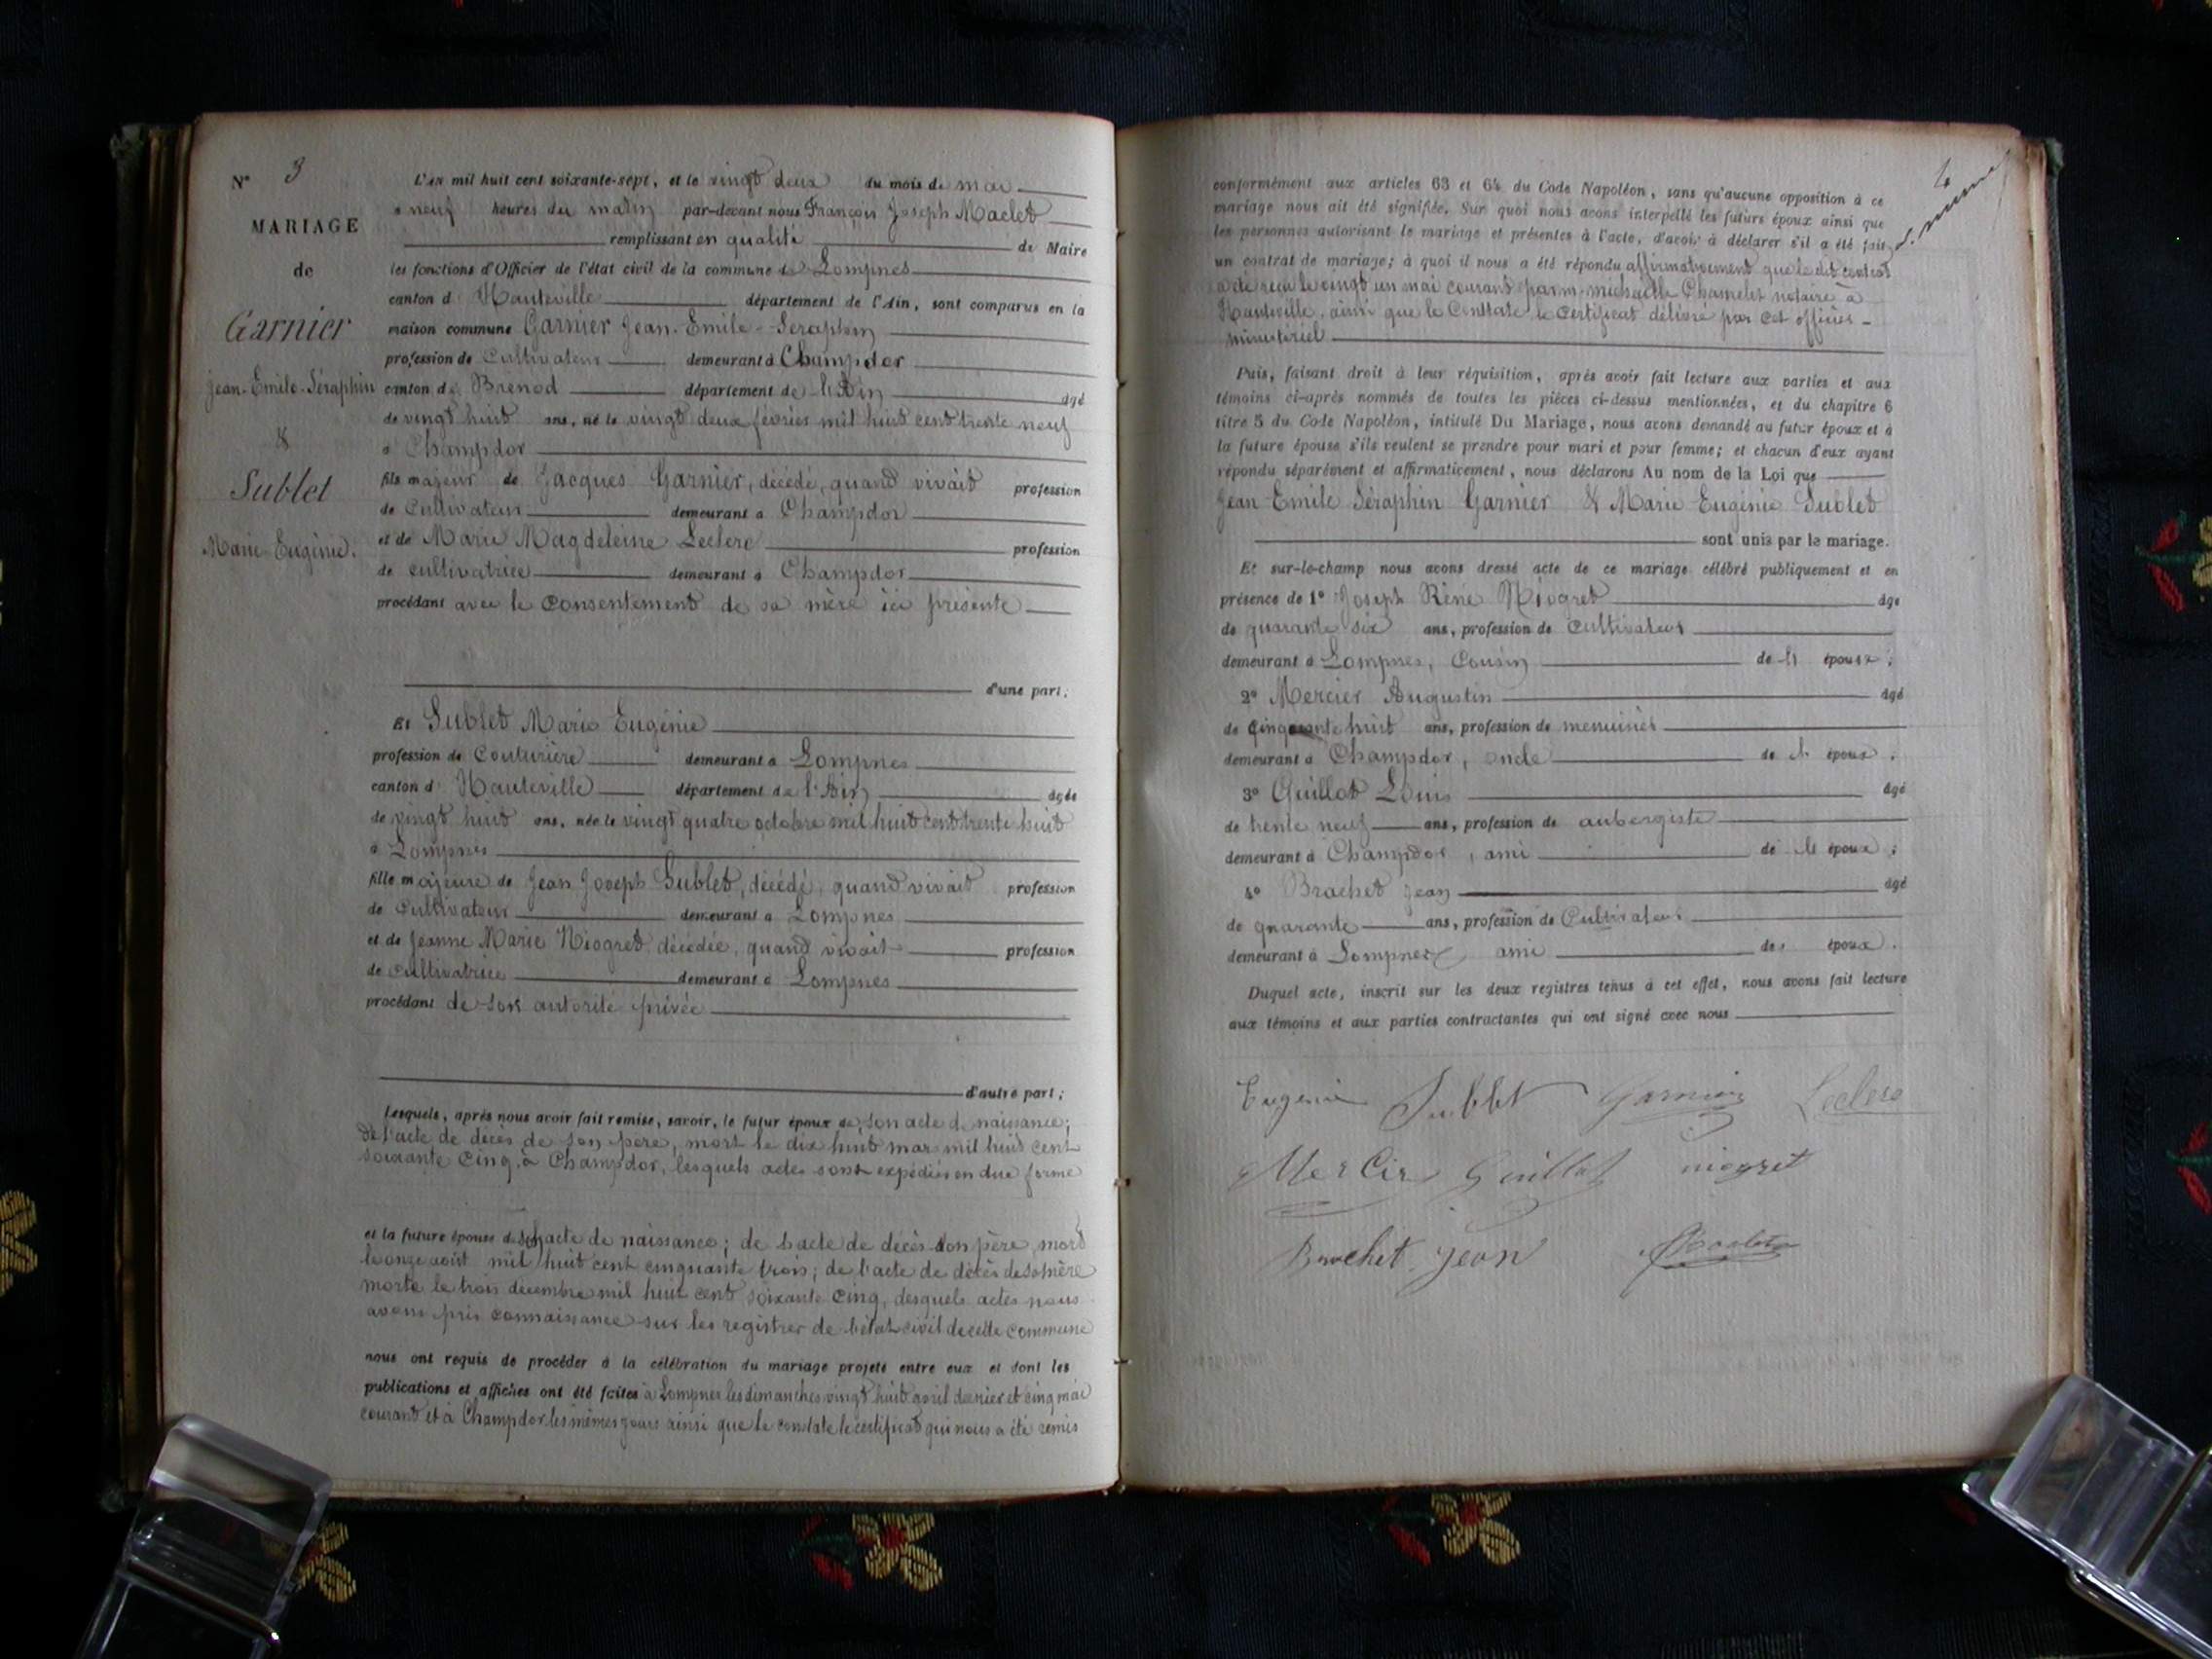 N° 3
MARIAGE
de
Garnier
Jean-Emile-Séraphin
&
Sublet
Marie-Eugénie.
L'an mil huit cent soixante-sept, et le vingt deux du mois de mai
à neuf heures du matin par-devant nous François Joseph Maclet
remplissant en qualité de Maire
les fonctions d'Officier de l'état civil de la commune de Lompnes
canton d' Hauteville département de l'Ain, sont comparus en la
maison commune Garnier Jean-Emile-Seraphin
profession de Cultivateur demeurant à Champdor
canton de Brénod département de l'Ain âgé
de vingt huit ans, né le vingt deux février mil huit cent trente neuf
à Champdor
fils majeur de Jacques Garnier, décédé, quand vivait profession
de Cultivateur demeurant à Champdor
et de Marie Magdeleine Leclerc profession
de cultivatrice demeurant à Champdor
procédant avec le consentement de sa mère ici présente
d'une part;
Et Sublet Marie Eugénie
profession de Couturière demeurant à Lompnes
canton d' Hauteville département de l'Ain âgée
de vingt huit ans, née le vingt quatre octobre mil huit cent trente huit
à Lompnes
fille majeure de Jean Joseph Sublet, décédé, quand vivait profession
de Cultivateur demeurant à Lompnes
et de Jeanne Marie Niogret décédée, quand vivait profession
de cultivatrice demeurant à Lompnes
procédant de son autorité privée
d'autre part;
Lesquels, après nous avoir fait remise, savoir, le futur époux de son acte de naissance;
de l'acte de décès de son père, mort le dix huit mars mil huit cent
soixante cinq, à Champdor, lesquels actes sont expédiés en due forme
et la future épouse de son acte de naissance; de l'acte de décès son père mort
le onze août mil huit cent cinquante trois; de l'acte de décès de sa mère
morte le trois décembre mil huit cent soixante cinq, desquels actes nous
avons pris connaissance sur les registres de l'état civil de cette commune
nous ont requis de procéder à la célébration du mariage projeté entre eux et dont les
publications et affiches ont été faites à Lompnes les dimanches vingt huit avril dernier et cinq mai
courant et à Champdor les mêmes jours ainsi que le constate le certificat qui nous a été remis
conformément aux articles 63 et 64 du Code Napoléon, sans qu'aucune opposition à ce
mariage nous ait été signifiée. Sur quoi nous avons interpellé les futurs époux ainsi que
les personnes autorisant le mariage et présentes à l'acte, d'avoir à déclarer s'il a été fait
un contrat de mariage; à quoi il nous a été répondu affirmativement que le dit contrat
a été reçu le vingt un mai courant par m. Chamelet notaire à
Hauteville, ainsi que le constate le certificat délivré par cet officier
ministériel
Puis, faisant droit à leur réquisition, après avoir fait lecture aux parties et aux
témoins ci-après nommés de toutes les pièces ci-dessus mentionnées, et du chapitre 6
titre 5 du Code Napoléon, intitulé Du Mariage, nous avons demandé au futur époux et à
la future épouse s'ils veulent se prendre pour mari et pour femme; et chacun d'eux ayant
répondu séparément et affirmativement, nous déclarons Au nom de la Loi que
Jean Emile Séraphin Garnier & Marie Eugénie Sublet
sont unis par le mariage.
Et sur-le-champ nous avons dressé acte de ce mariage célébré publiquement et en
présence de 1° Joseph Réné Niogret âgé
de quarante six ans, profession de cultivateur
demeurant à Lompnes, Cousin de l' épouse;
2° Mercier Augustin âgé
de cinquante huit ans, profession de menuisier
demeurant à Champdor, oncle de l' époux.
3° Guillot Louis âgé
de trente neuf ans, profession de aubergiste
demeurant à Champdor, ami de l' époux;
4° Brachet Jean âgé
de quarante ans, profession de Cultivateur
demeurant à Lompnes ami des époux.
Duquel acte, inscrit sur les deux registres tenus à cet effet, nous avons fait lecture
aux témoins et aux parties contractantes qui ont signé avec nous
Eugénie Sublet Garnier Leclerc
Mercier Guillot niogret
Brachet Jean Maclet